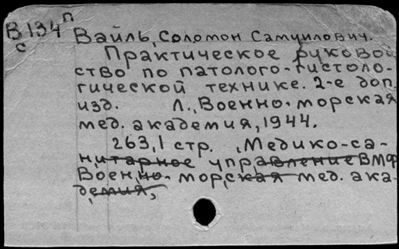 В 134 п
с
Вайль, Соломон Самуилович.
Практическое руковод
ство по патолого-гистоло-
гической технике. 2-е доп.
изд. Л., Военно-морская
мед. академия, 1944.
263,1 стр. (Медико-са-
нитарное управление ВМФ
Военно-морская мед. ака-
демия,